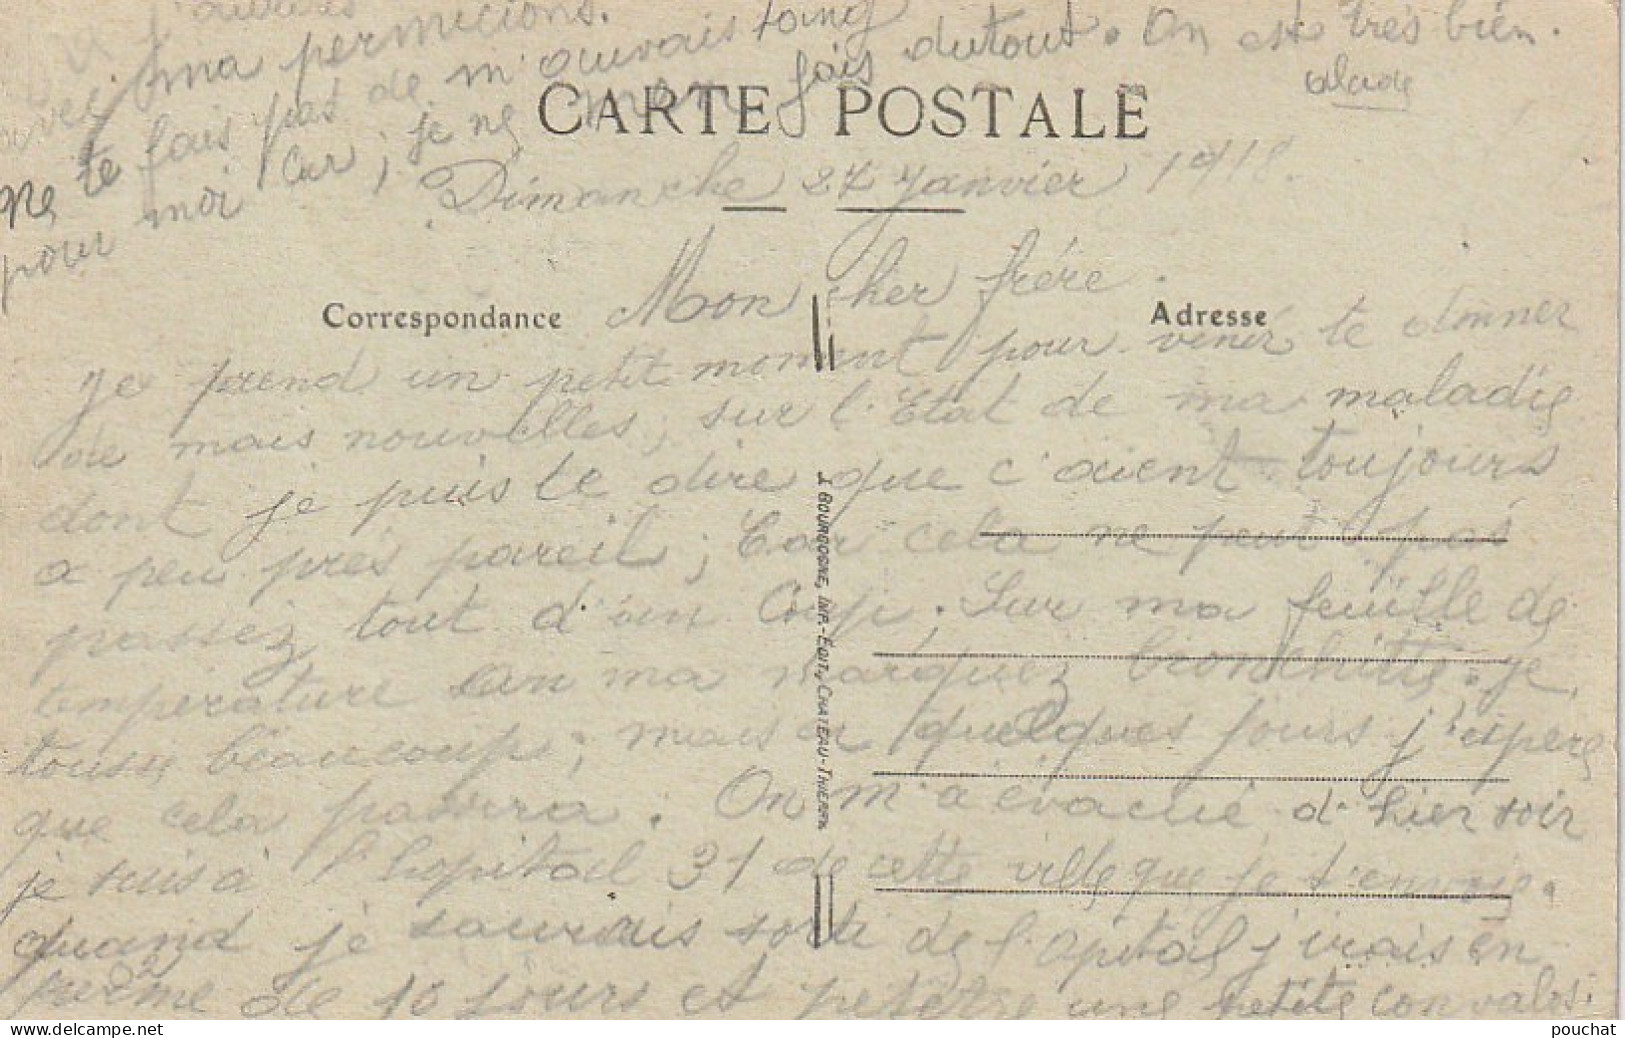 j'aurais
avec ma permicions.
Ne te fais pas de m'ouvais sang
pour moi car ; je ne m'en fais dutout. On est très bien.
CARTE POSTALE
Dimanche 27 Janvier 1918.
Mon cher frère.
Correspondance
Adresse
Je prend un petit moment pour venir te donner
de mais nouvelles, sur l'Etat de ma maladie
dont je puis te dire que c'aient toujours
a peu près pareil ; Car cela ne peut pas
passez tout d'un Coup. Sur ma feuille de
temperature on ma marquez bronchitte. Je
tousse beaucoup ; mais en quelques jours j'espere
que cela passera. On m'a évacué d'hier soir
je suis à l'hopital 31 de cette ville que je t'envoie.
quand je saurais sorti de l'opital j'irais en
perme de 10 jours et petetre une petite convales.
J. BOURGOGNE, IMP.-ÉDIT., CHATEAU-THIERRY
pouchat
www.delcampe.net